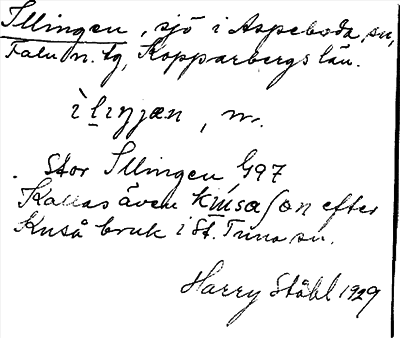 Illingen, sjö i Aspeboda sn,
Falu n. tg, Kopparbergs län.
ìlıŋjæn, m.
Stor Illingen G97
Kallas även knısaʃøn efter
Knså bruk i St. Tuna sn.
Harry Ståhl 1929